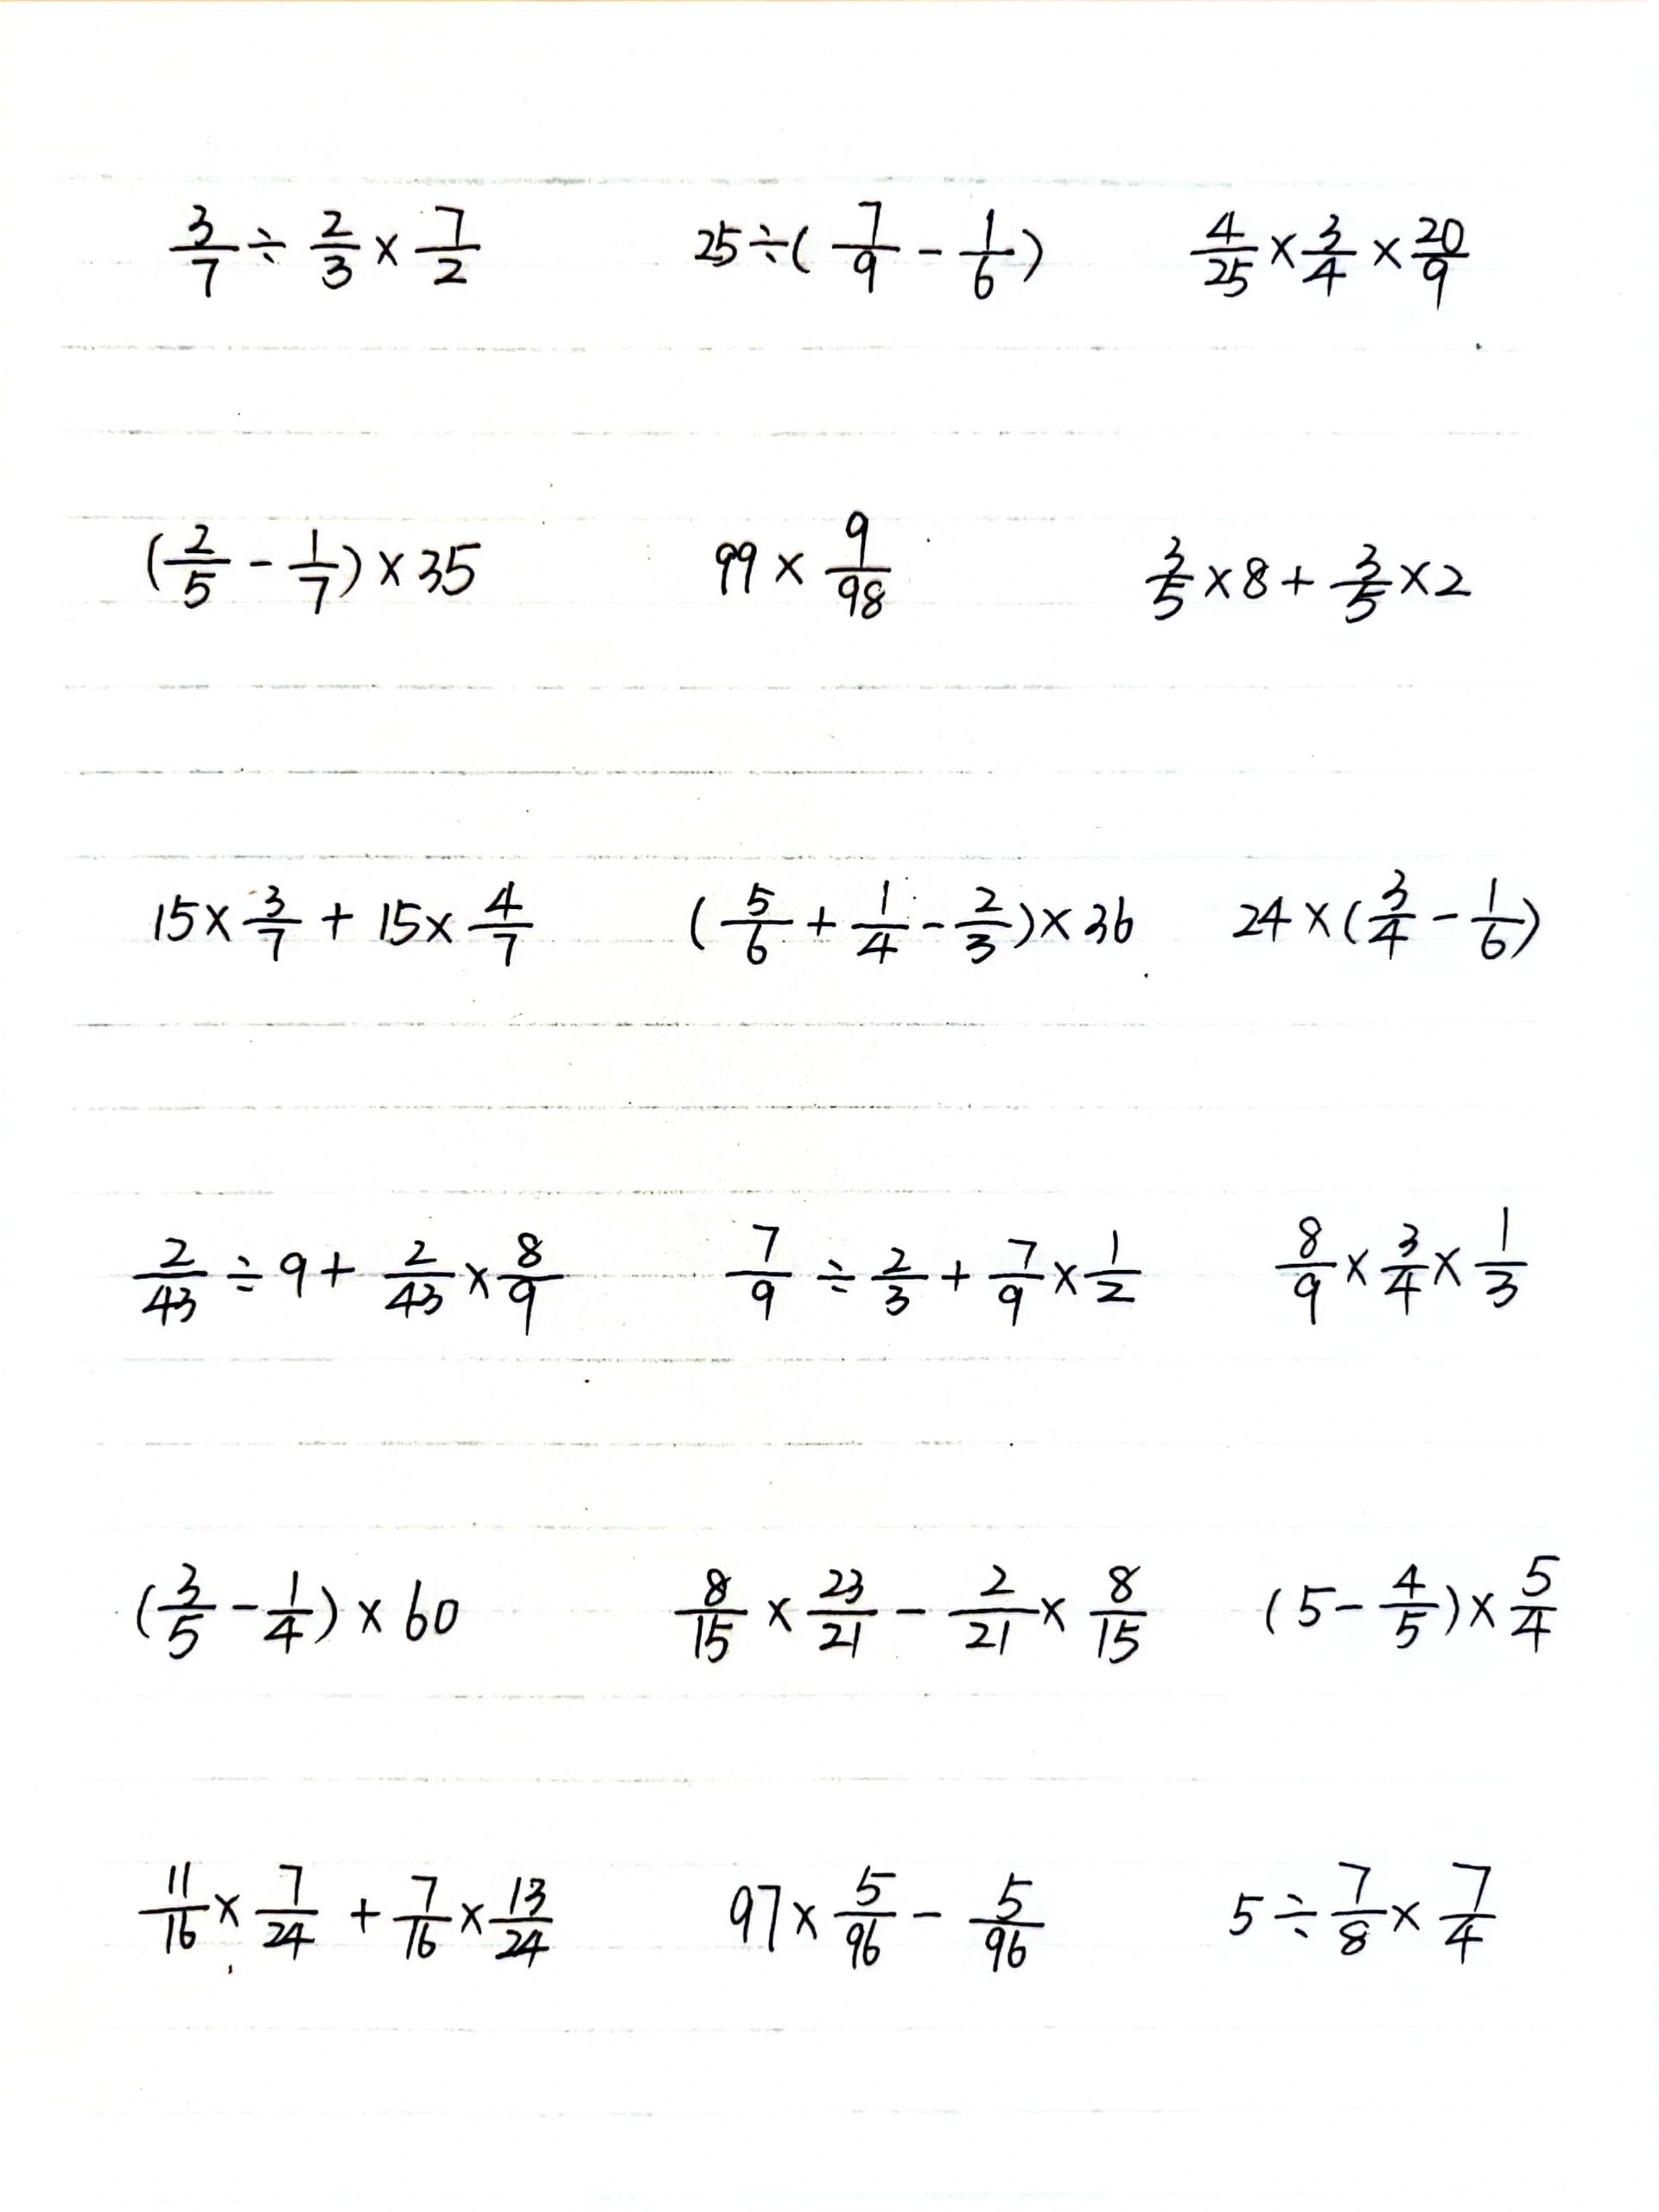 3/7 ÷ 2/3 × 7/2    25÷(7/9 - 1/6)    4/25 × 3/4 × 20/9
(2/5 - 1/7) × 35    99 × 9/98    3/5 × 8 + 3/5 × 2
15 × 3/7 + 15 × 4/7    (5/6 + 1/4 - 2/3) × 36    24 × (3/4 - 1/6)
2/43 ÷ 9 + 2/43 × 8/9    7/9 ÷ 2/3 + 7/9 × 1/2    8/9 × 3/4 × 1/3
(3/5 - 1/4) × 60    8/15 × 23/21 - 2/21 × 8/15    (5 - 4/5) × 5/4
11/16 × 7/24 + 7/16 × 13/24    97 × 5/96 - 5/96    5 ÷ 7/8 × 7/4